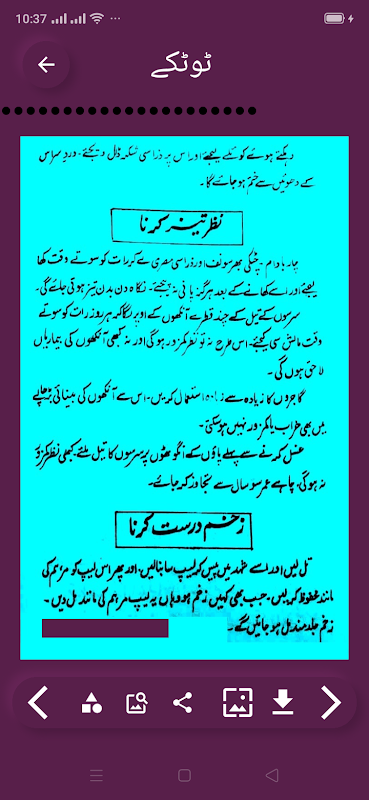 10:37
ٹوٹکے
دہکتے ہوئے کوئلے لیجئے اور اس پر ذرا سی شکر ڈال دیجئے۔ درد سر اس
کے دھوئیں سے ختم ہو جائے گا۔
نظر تیز کرنا
چار بادام، چٹکی بھر سونف اور ذرا سی مصری لے کر رات کو سوتے وقت کھا
لیجئے اور اسے کھانے کے بعد ہرگز پانی نہ پیجئے۔ نگاہ دن بدن تیز ہوتی جائے گی۔
سرسوں کے تیل کے چند قطرے آنکھوں کے اوپر لگا کر ہر روز رات کو سوتے
وقت مالش کیجئے۔ اس طرح نہ تو نظر کمزور ہو گی اور نہ کبھی آنکھوں کی بیماریاں
لاحق ہوں گی۔
گاجروں کا زیادہ سے زیادہ استعمال کریں۔ اس سے آنکھوں کی بینائی بڑھاپے
میں بھی خراب یا کمزور نہیں ہو سکتی۔
غسل کرنے سے پہلے پاؤں کے انگوٹھوں پر سرسوں کا تیل ملئے کبھی نظر کمزور
نہ ہو گی، چاہے عمر سو سال سے تجاوز کر جائے۔
زخم درست کرنا
تل لیں اور اسے شہد میں پیس کر لیپ سا بنا لیں، اور پھر اس لیپ کو مرہم کی
مانند محفوظ کر لیں۔ جب بھی کہیں زخم ہو وہاں یہ لیپ مرہم کی مانند مل دیں۔
زخم جلد مندمل ہو جائیں گے۔